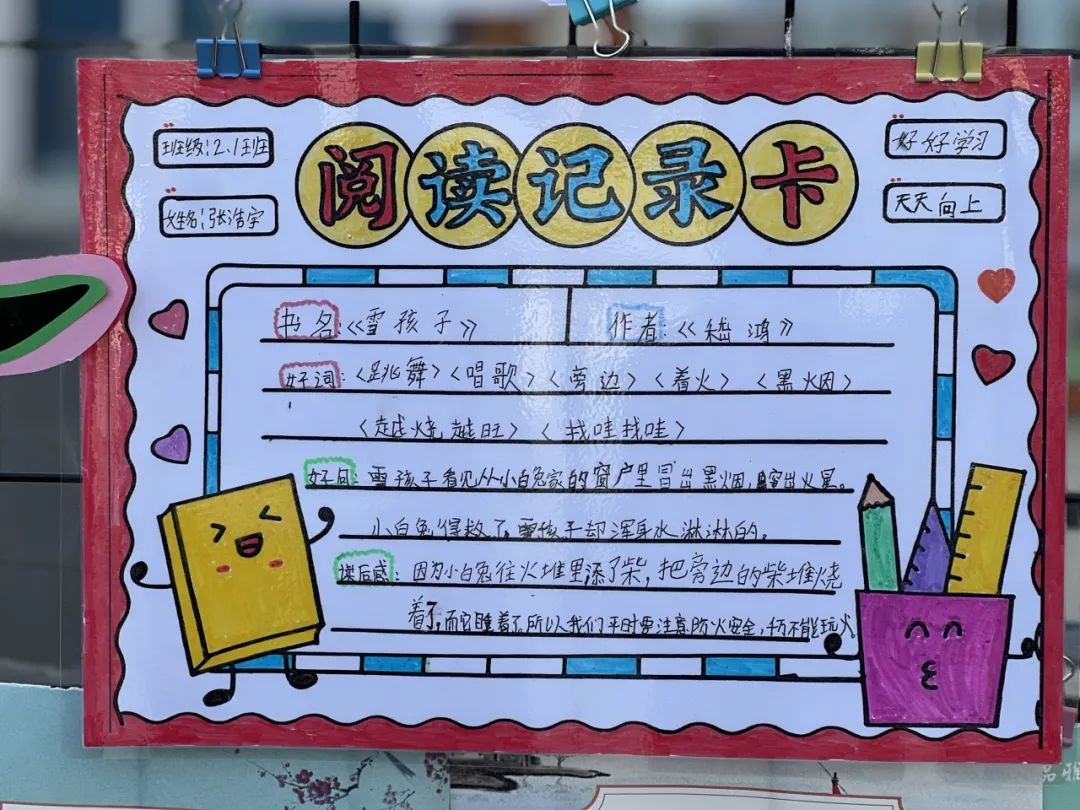 班级:2.1班
阅读记录卡
好好学习
姓名:张浩宇
天天向上
书名:《雪孩子》
作者:《嵇鸿》
好词:〈跳舞〉〈唱歌〉〈旁边〉〈着火〉〈黑烟〉
〈越烧越旺〉〈找哇找哇〉
好句:雪孩子看见从小白兔家的窗户里冒出黑烟,窜出火星。
小白兔得救了,雪孩子却浑身水淋淋的。
读后感:因为小白兔往火堆里添了柴,把旁边的柴堆烧
着了,而它睡着了,所以我们平时要注意防火安全,千万不能玩火。